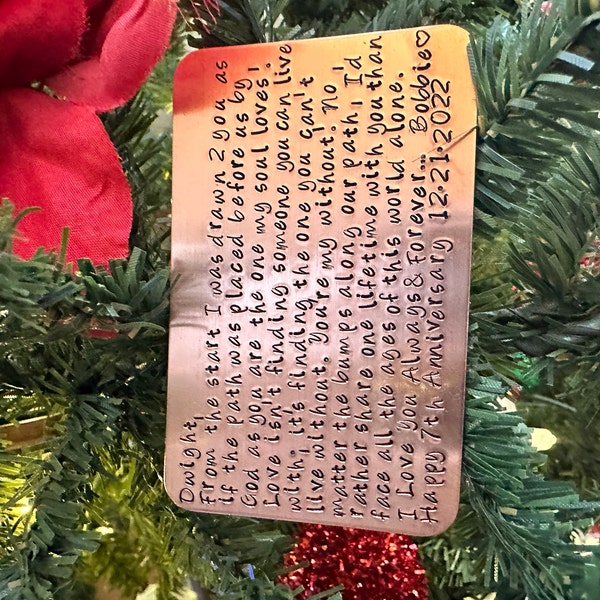 Dwight,
From the start I was drawn 2 you as
if the path was placed before us by
God as you are the one my soul loves!
Love isn't finding someone you can live
with, it's finding the one you can't
live without. You're my without! No
matter the bumps along our path, I'd
rather share one lifetime with you than
face all the ages of this world alone.
I Love You Always & Forever... Bobbie♡
Happy 7th Anniversary 12.21.2022